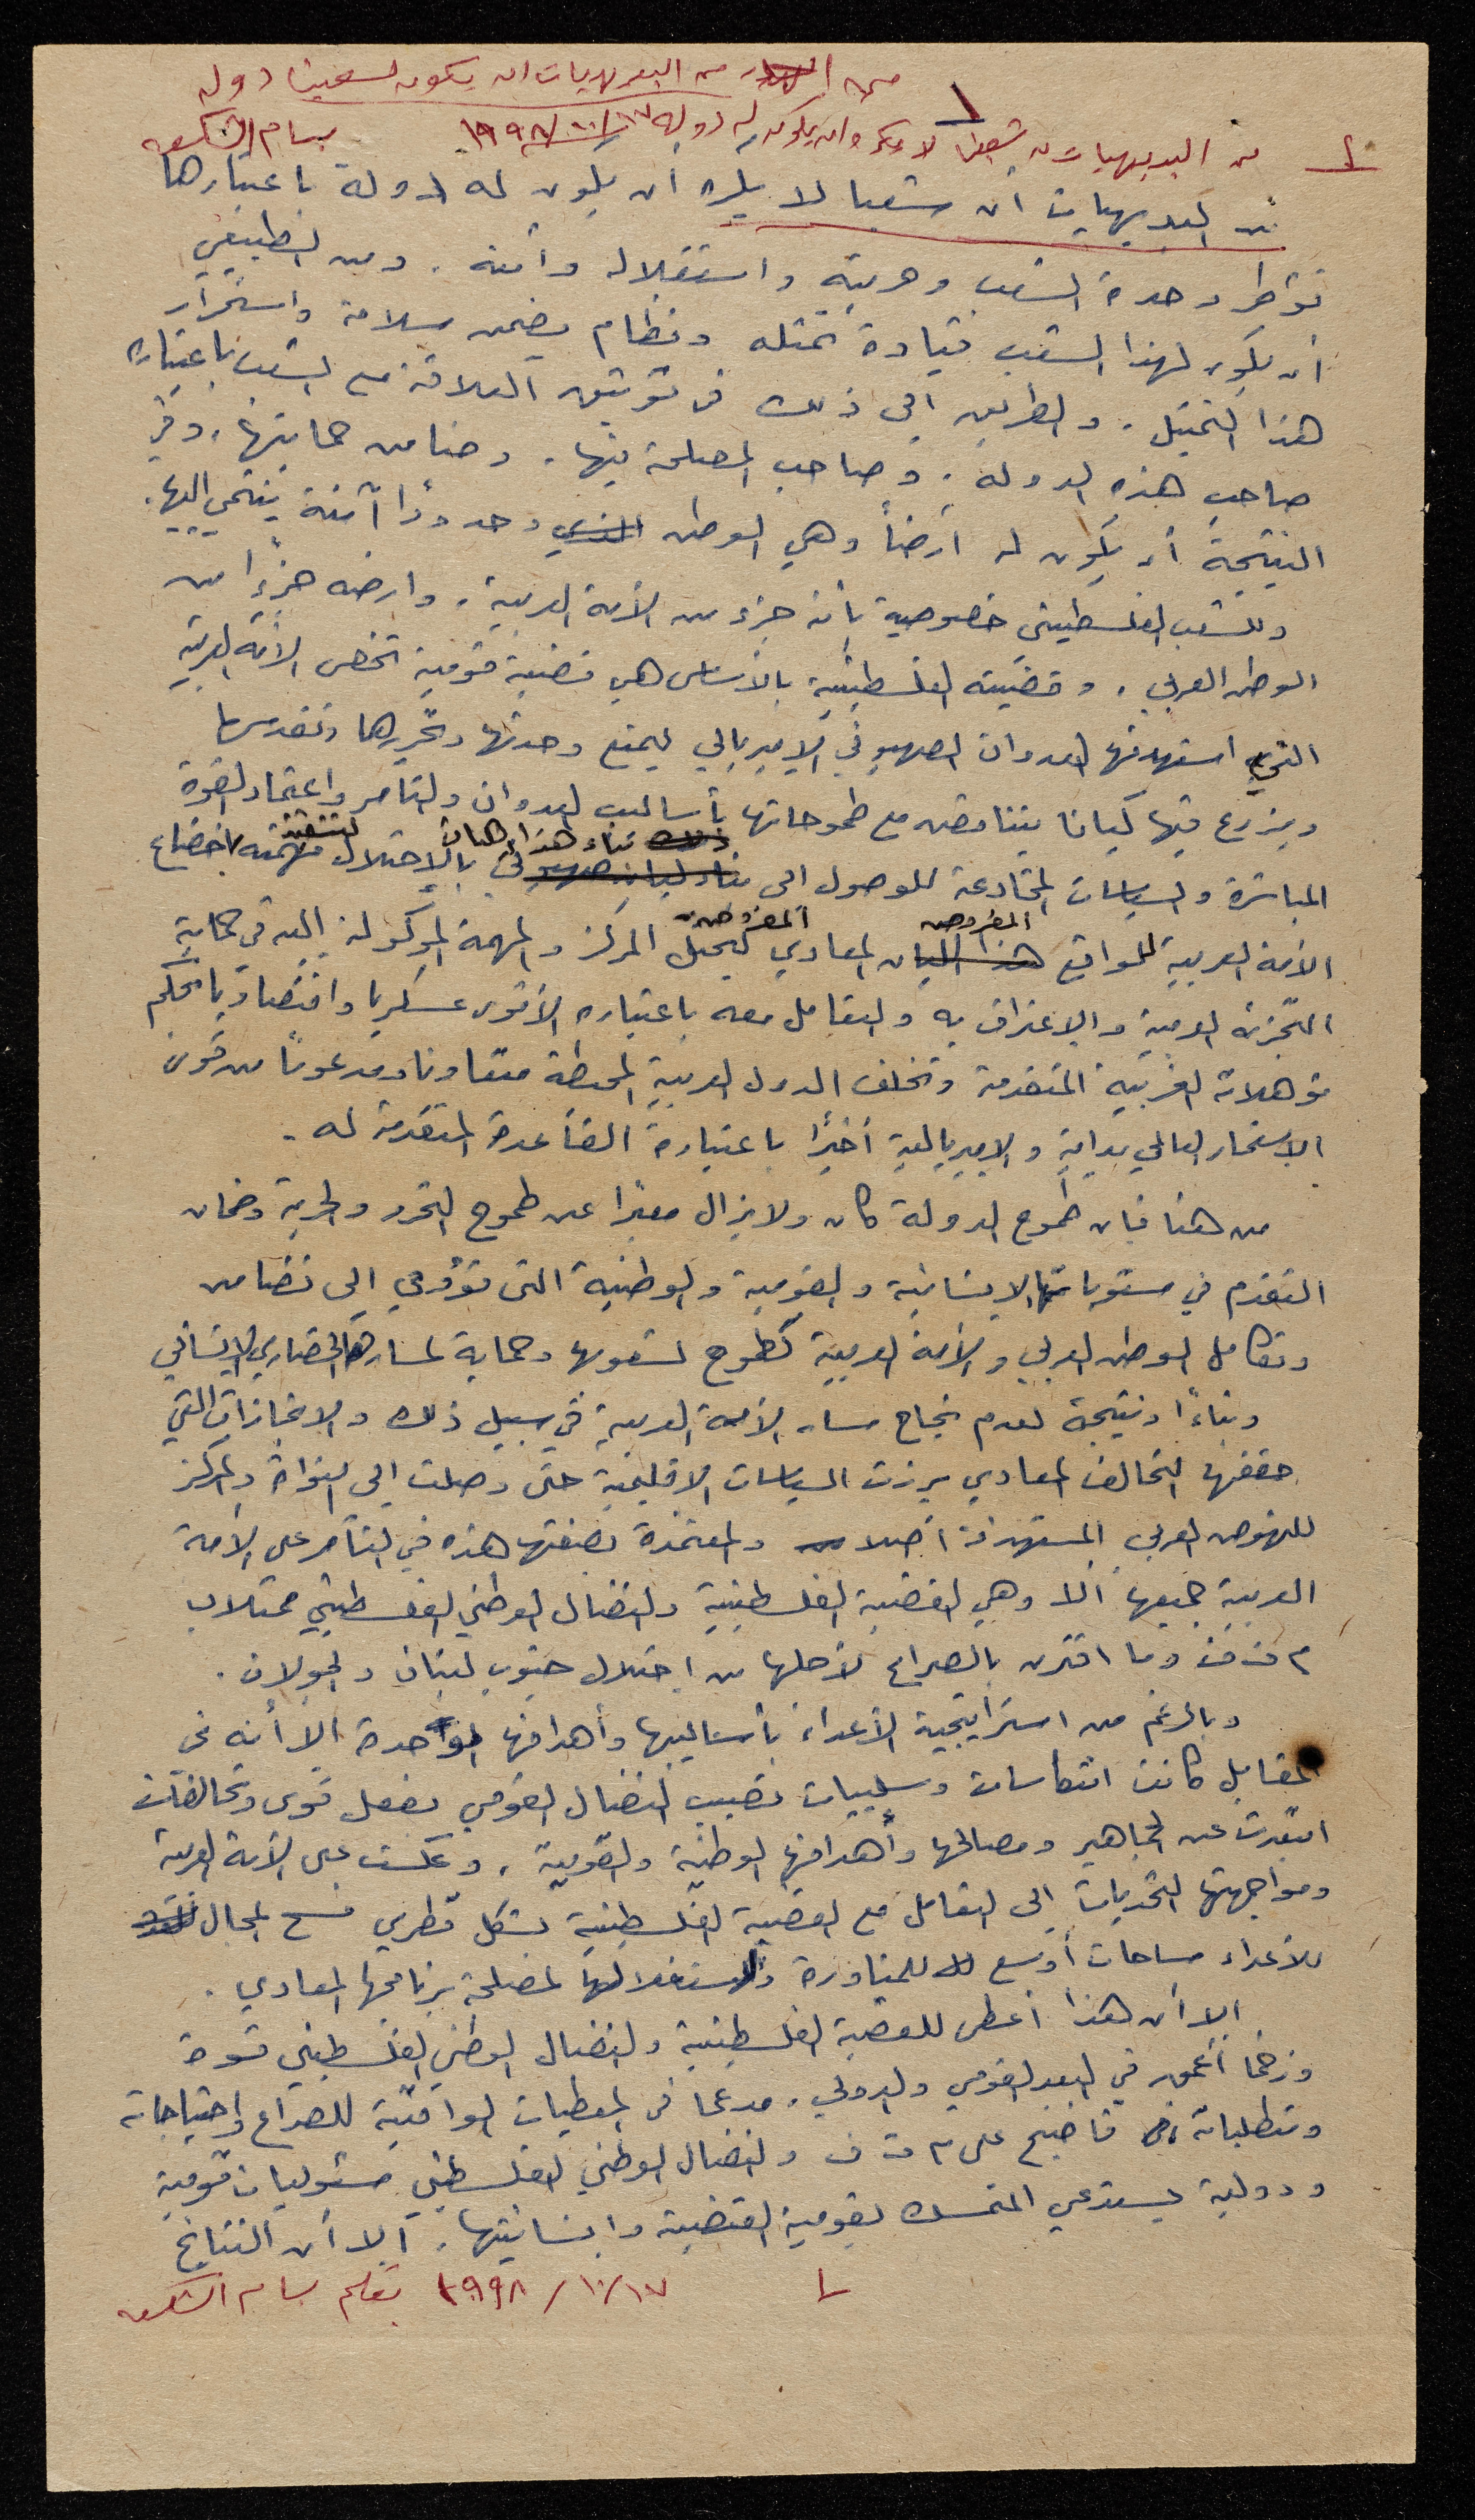 من البديهيات ان يكون لشعبنا دولة
من البديهيات ان شعبنا لا يكره ان يكون له دولة ١٧/١٠/١٩٩٨ بسام الشكعه
من البديهيات أن شعبا لا يكره أن يكون له دولة باعتبارها
تؤطر وحدة الشعب وحريته واستقلاله وأمنه . ومن الطبيعي
أن يكون لهذا الشعب قيادة تمثله ونظام يضمن سلامة واستمرار
هذا التمثيل . والطريق الى ذلك في توثيق العلاقة مع الشعب باعتباره
صاحب هذه الدولة . وصاحب المصلحة فيها . وضامن حمايتها . وفي
النتيجة أن يكون له أرضاً وهي الوطن الذي وحدودًا آمنة ينتمي اليها .
وللشعب الفلسطيني خصوصية بأنه جزء من الأمة العربية . وارضه جزءًا من
الوطن العربي . وقضيته الفلسطينية بالأساس هي قضية قومية تخص الأمة العربية
التي استهدفها العدوان الصهيوني الامبريالي ليمنع وحدتها وتحررها وتقدمها
ويزرع فيها كيانا يتناقض مع طموحاتها بأساليب العدوان والتآمر واعتماد القوة
المباشرة والسياسات المخادعة للوصول الى بناء هذا الكيان بالاحتلال لتنفيذ مهمته باخضاع
الأمة العربية للواقع المفروض المعادي ليحتل المركز والمهمة الموكولة اليه في حماية
التجزئة العربية والاعتراف به والتعامل معه باعتباره الأقوى عسكريا واقتصاديا بحكم
مؤهلاته الغربية المتقدمة وتخلف الدول العربية المحيطة متعاونا ومدعومًا من قوى
الاستعمار العالمي بداية والامبريالية أخيرًا باعتباره القاعدة المتقدمة له .
من هنا فإن طموح الدولة كان ولا يزال معبرًا عن طموح التحرر والحرية وضمان
التقدم في مستوياتها الانسانية والقومية والوطنية التي تؤدي الى تضامن
وتكامل الوطن العربي والأمة العربية كطموح لشعوبها وحماية لمسارها الحضاري الانساني
وبناءً ونتيجة لعدم نجاح مسار الأمة العربية في سبيل ذلك والانجازات التي
حققها التحالف المعادي برزت السياسات الاقليمية حتى وصلت الى النواة والمركز
للنهوض العربي المستهدفة أصلا والمعتمدة بصفتها هذه في التآمر على الأمة
العربية جميعها ألا وهي القضية الفلسطينية والنضال الوطني الفلسطيني ممثلا ب
م ت ف وما اقترن بالصراع لأجلها من احتلال جنوب لبنان والجولان .
وبالرغم من استراتيجية الأعداء بأساليبها وأهدافها الواحدة الا أنه في
المقابل كانت انتكاسات وسلبيات تصيب النضال القومي بفعل قوى وتحالفات
ابتعدت عن الجماهير ومصالحها وأهدافها الوطنية والقومية . وعكست على الأمة العربية
ومواجهتها التحديات الى التعامل مع القضية الفلسطينية بشكل قطري فسح المجال
للأعداء مساحات أوسع للمناورة والاستغلالها لمصلحة برنامجها المعادي .
الا أن هذا أعطى للقضية الفلسطينية والنضال الوطني الفلسطيني قوة
وزخما أعمق في البعد القومي والدولي . مدعما في المعطيات الواقعية للصراع واحتياجاته
ومتطلباته فأصبح على م ت ف والنضال الوطني الفلسطيني مسئوليات قومية
ودولية يستدعي التمسك بقومية القضية وانسانيتها . الا أن النتائج
١٧/١٠/١٩٩٨ بقلم بسام الشكعه